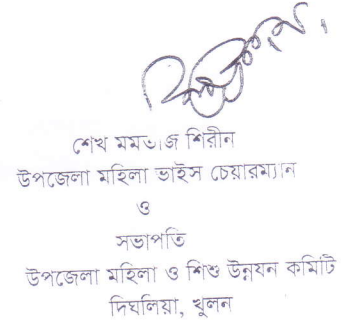 শেখ মমতাজ শিরীন
উপজেলা মহিলা ভাইস চেয়ারম্যান
ও
সভাপতি
উপজেলা মহিলা ও শিশু উন্নয়ন কমিটি
দিঘলিয়া, খুলন